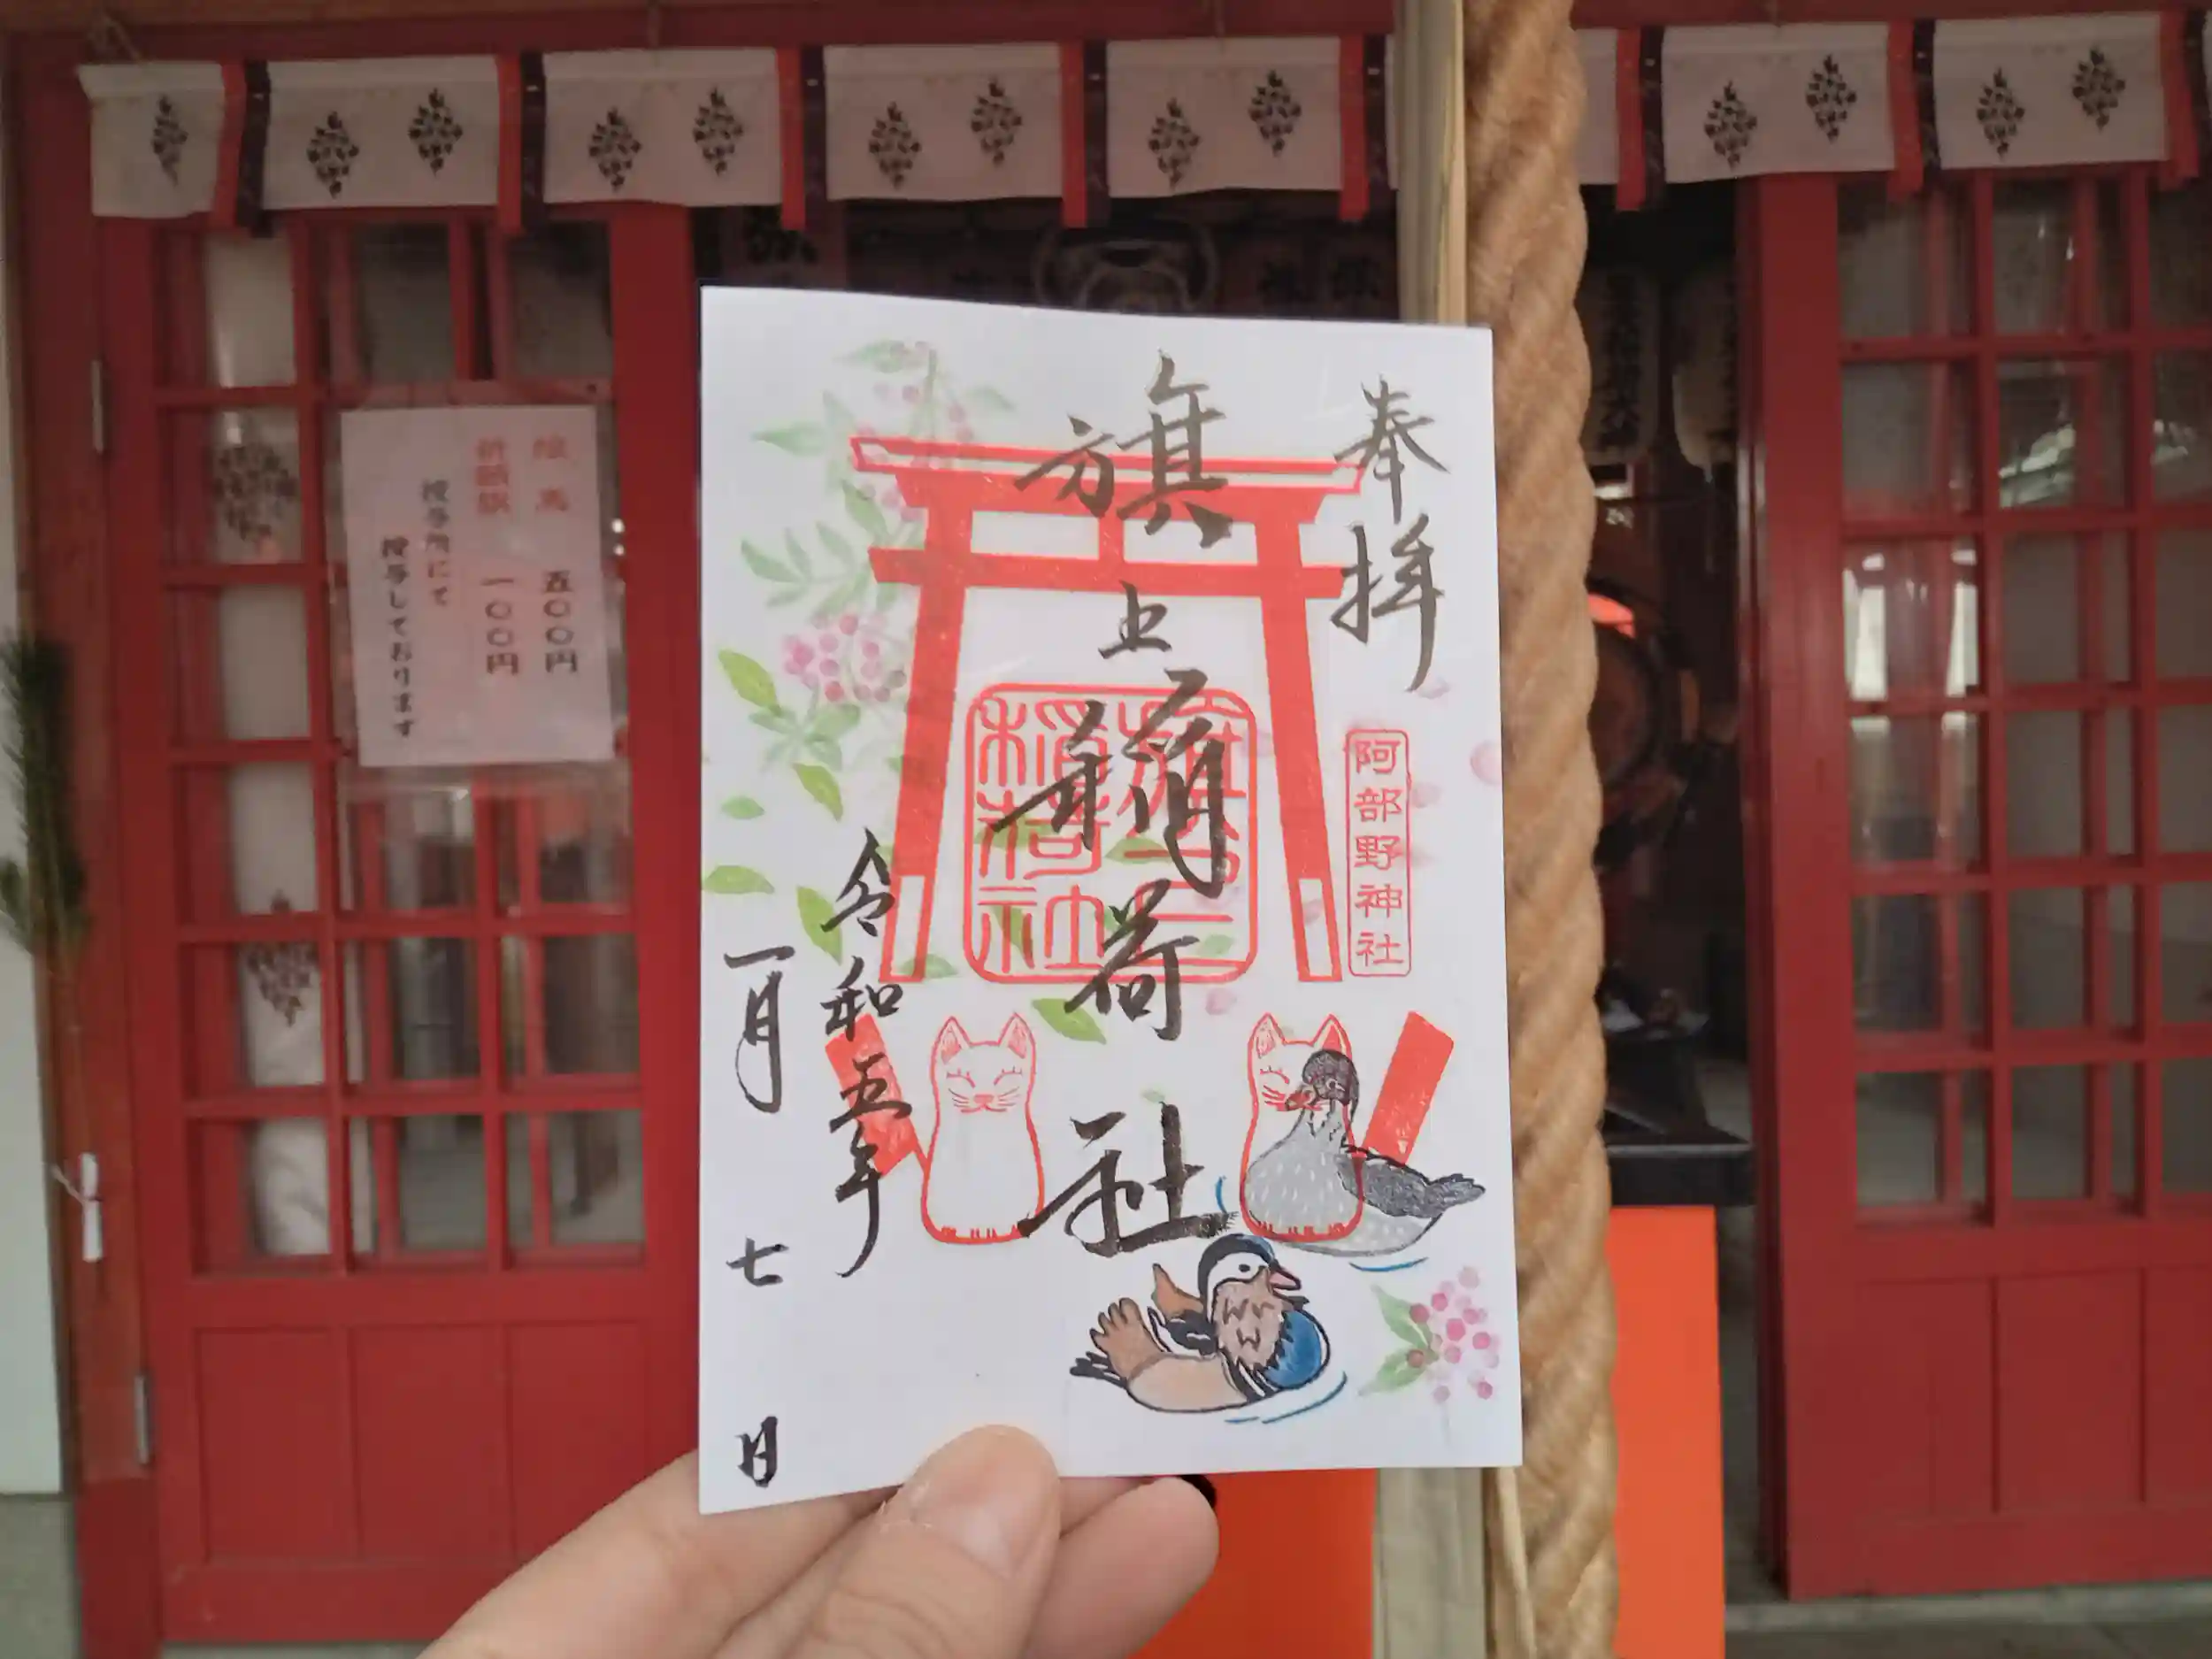 奉拝
阿部野神社
旗上稲荷社
旗上稲荷社
令和五年
一月七日
絵馬 五〇〇円
祈願旗 一〇〇円
授与所にて
授与しております